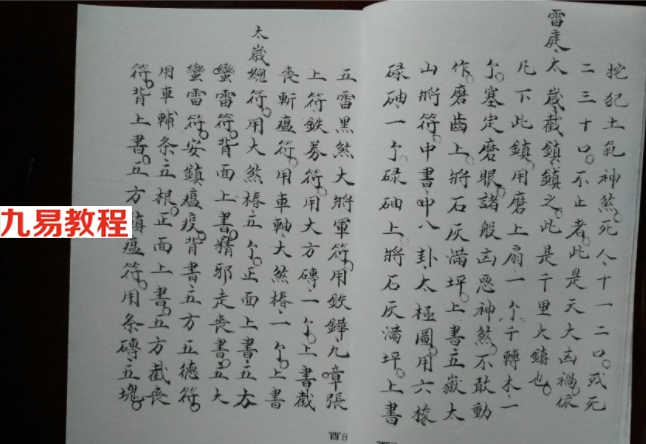 挖犯土氣神煞死人、十一二口。或死
二三十口。不止者此是天大凶禍依
雷庭、太歲截鎮鎮之。此是千里火鎮也。
凡下此鎮。用磨上扇一个千轉木一
个塞定磨眼。諸般凶惡神煞。不敢動
作。磨齒上。將石灰滿坪。上書五嶽大
山將符。中書中八卦太極圖。用六
碌砷一个。碌砷上。將石灰滿坪。上書
五雷黑煞大將軍符。用鉄鏵九
上符鉄券符。用大方磚一个。上書截
喪斬瘟符。用車軸大煞樁一个。上書
太歲總符。用大煞樁五个。正面上書五方
蠻雷符。背面上書。精邪走喪。書五大
蠻雷符。安鎮瘟疫。背書五方五德符。
用車輔条五根。正面上書。五方截喪
符。背上書。五方鎮瘟符。用条磚五塊。
酉8
九易教程